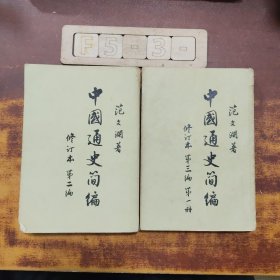 F5-3-
范文瀾著
中國通史简编
修订本 第二编
范文瀾著
中國通史简编
修订本 第三编 第一册